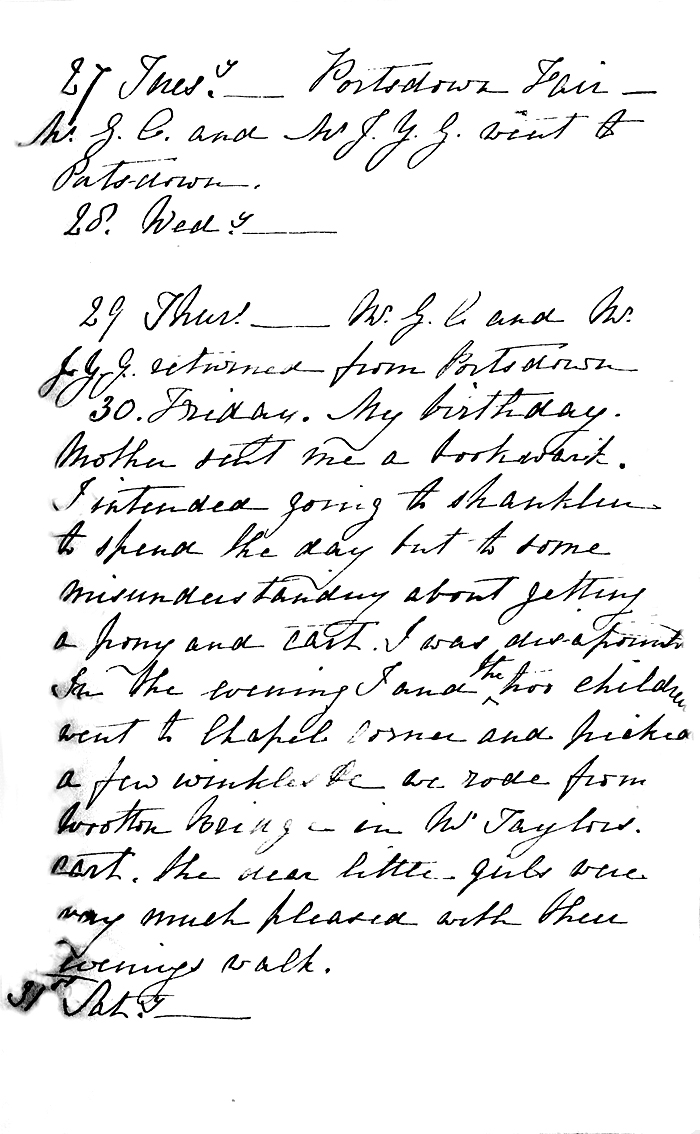 27 Tuesy. — Portsdown Fair —
Mr. G. C. and Mr J. Y. G. went to
Patsdown.
28. Wedy —

29 Thurs. — Mr. G. C and Mr.
J. Y. G. returned from Portsdown
30. Friday. My birthday.
Mother sent me a bookmark.
I intended going to Shanklin
to spend the day but to some
misunderstanding about getting
a pony and cart. I was disapoint
In the evening I and the two children
went to Chapel Corner and picked
a few winkles &c we rode from
Wootton Bridge – in Mr Taylors.
cart. the dear little girls were
very much pleased with their
evenings walk.
31st Saty. —